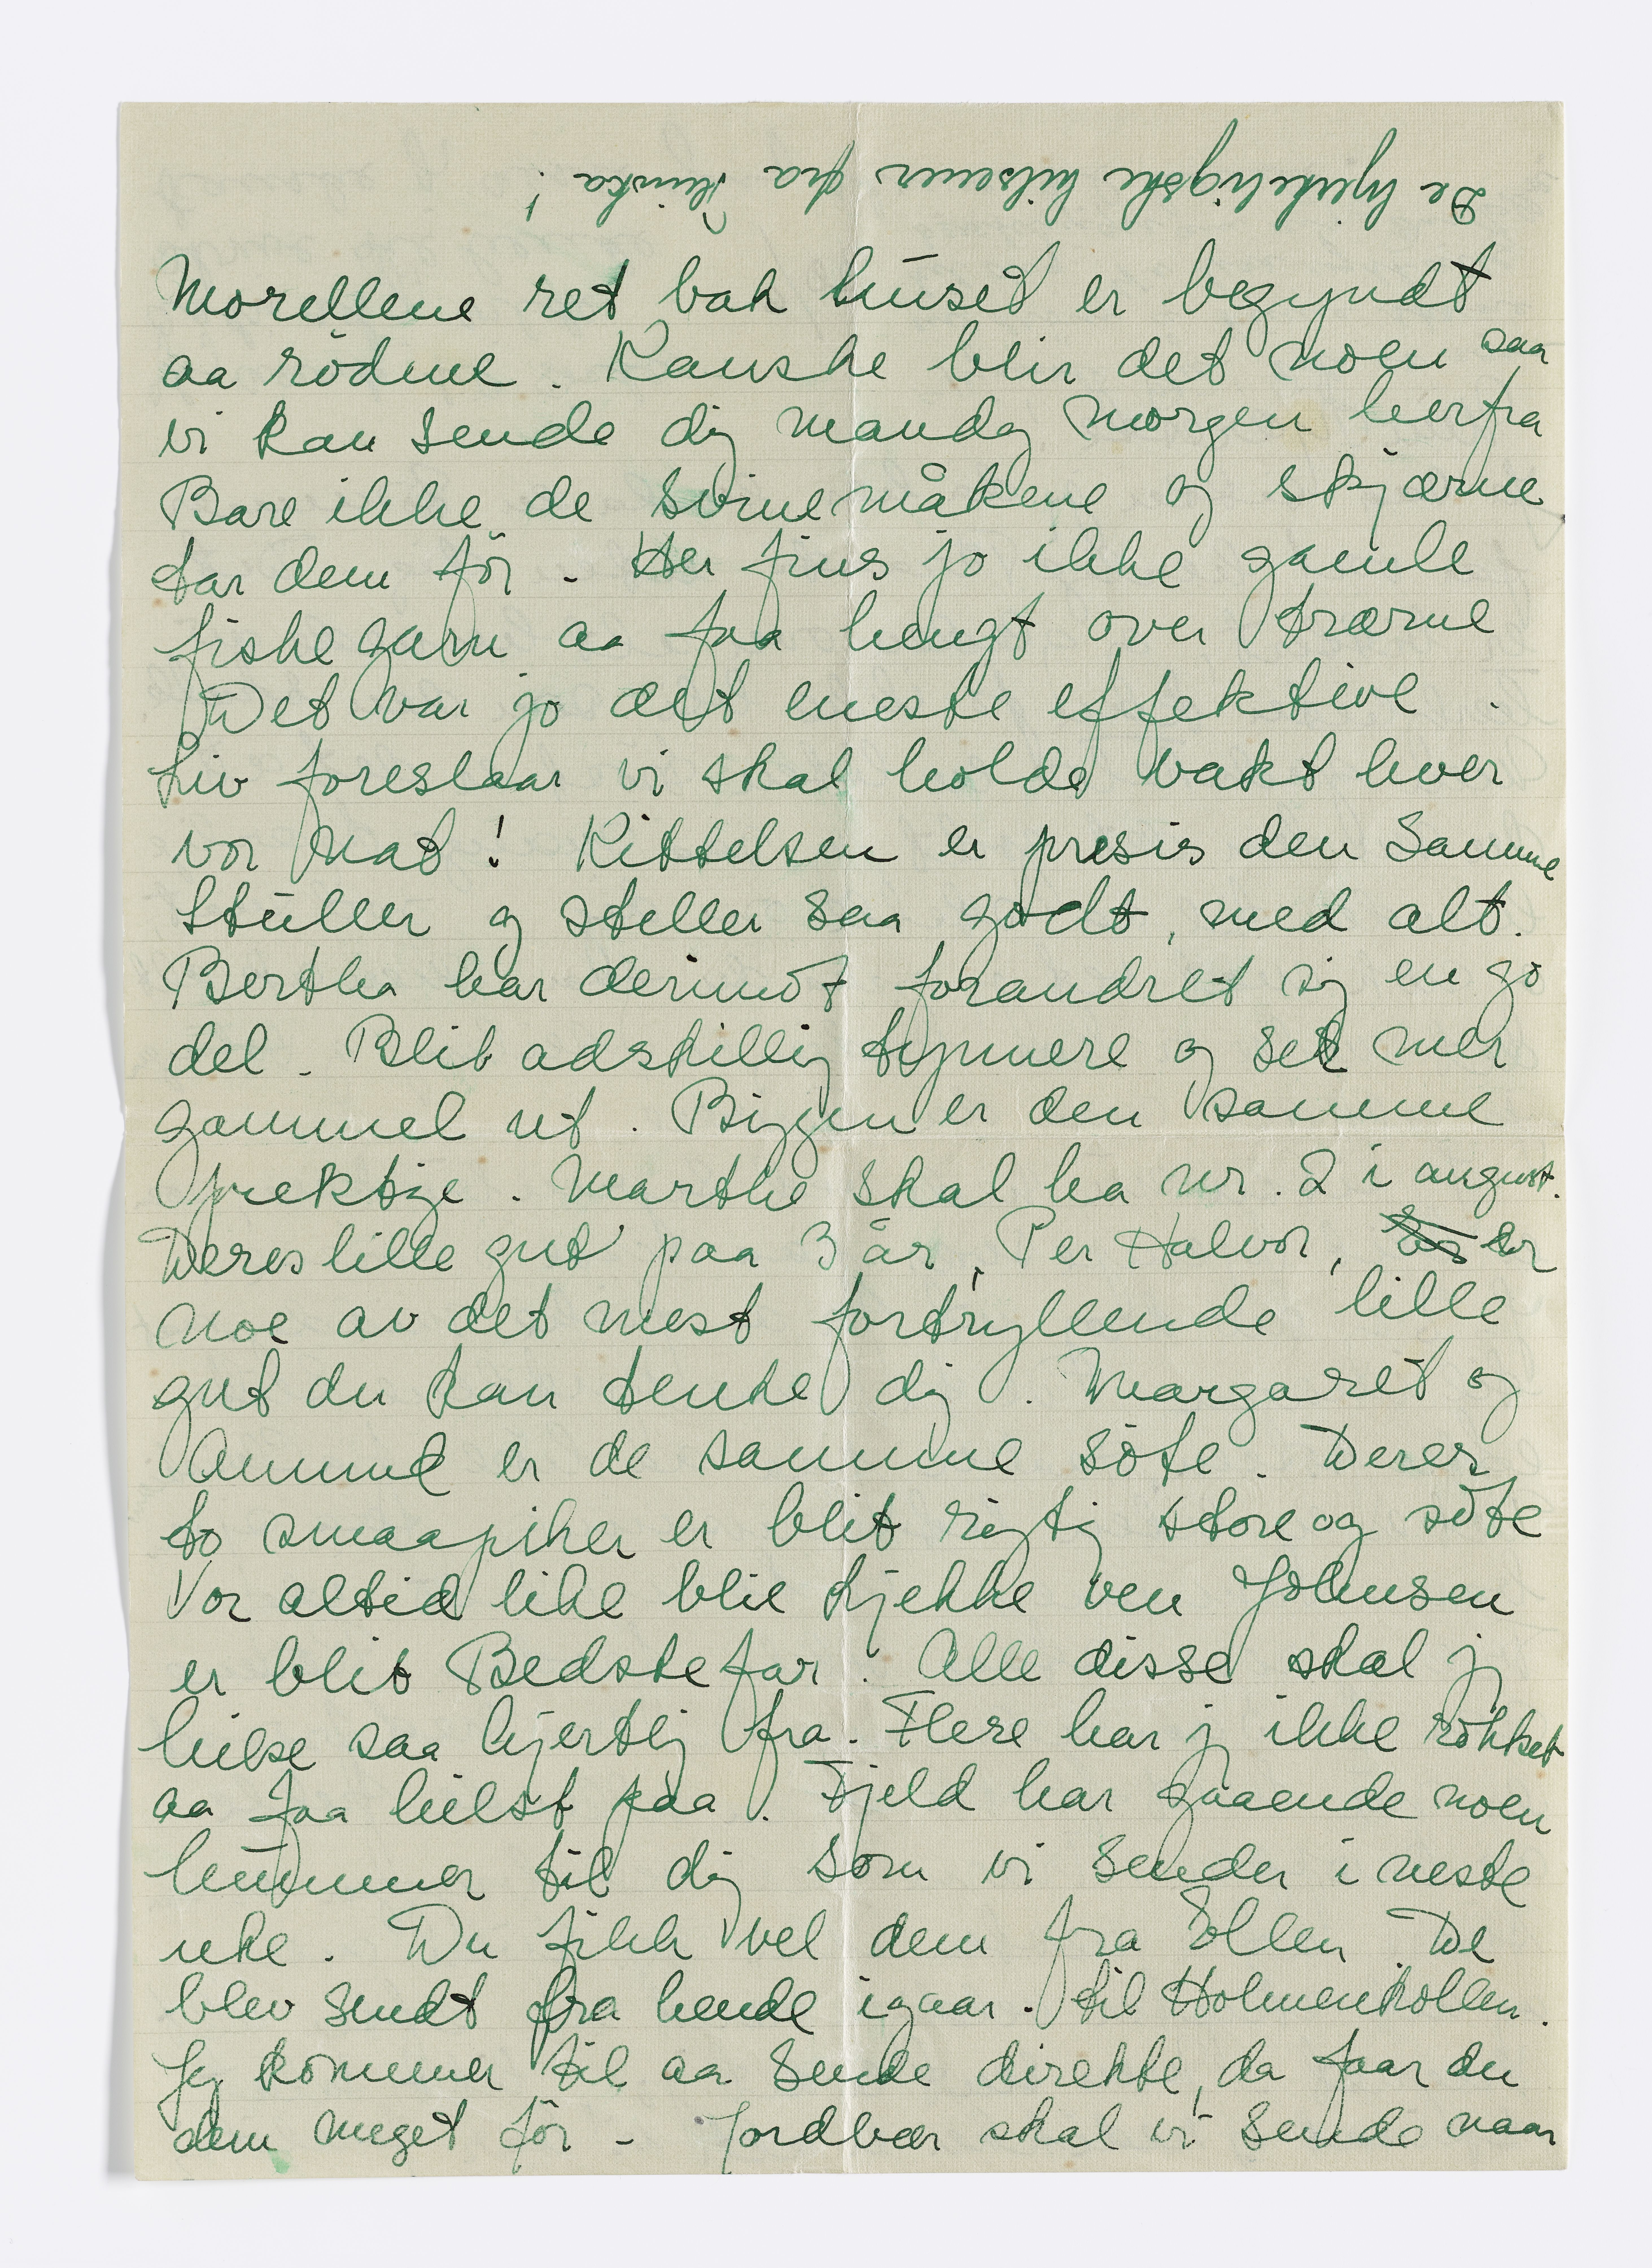 De hjerteligste hilsener fra Ninka!
Morellene ret bak huset er begyndt
aa rödme. Kanske blir det noen saa
vi kan sende dig mandag morgen herfra
Bare ikke de svinemåkene og skjærne
tar dem för. Her fins jo ikke gamle
fiskegarn aa faa hengt over trærne
Det var jo det eneste effektive.
Liv foreslaar vi skal holde vakt hver
vor nat! Kittelsen er presis den Samme
Stüller og steller saa godt, med alt.
Bertha har derimot forandret sig en go
del. Blit adskillig tynnere og set mer
gammel ut. Biggen er den samme
prektige. Marthe skal ha nr. 2 i august.
Deres lille gut paa 3 år, Per Halvor, er
noe av det mest fortryllende lille
gut du kan tenke dig. Margaret og
Ammund er de samme söte. Deres
to smaapiker er blit rigtig store og söte
Vor altid like blie kjekke ven Johnsen
er blit Bedstefar. Alle disse skal jg
hilse saa hjertlig fra. Flere har jg ikke rökket
aa faa hilst paa. Fjeld har gaaende noen
hummer til dig som vi sender i neste
uke. Du fikk vel dem fra Ellen. De
blev sendt fra hende igaar. til Holmenkollen.
Jeg kommer til aa sende direkte, da faar du
dem meget för - Jordbær skal vi sende naar